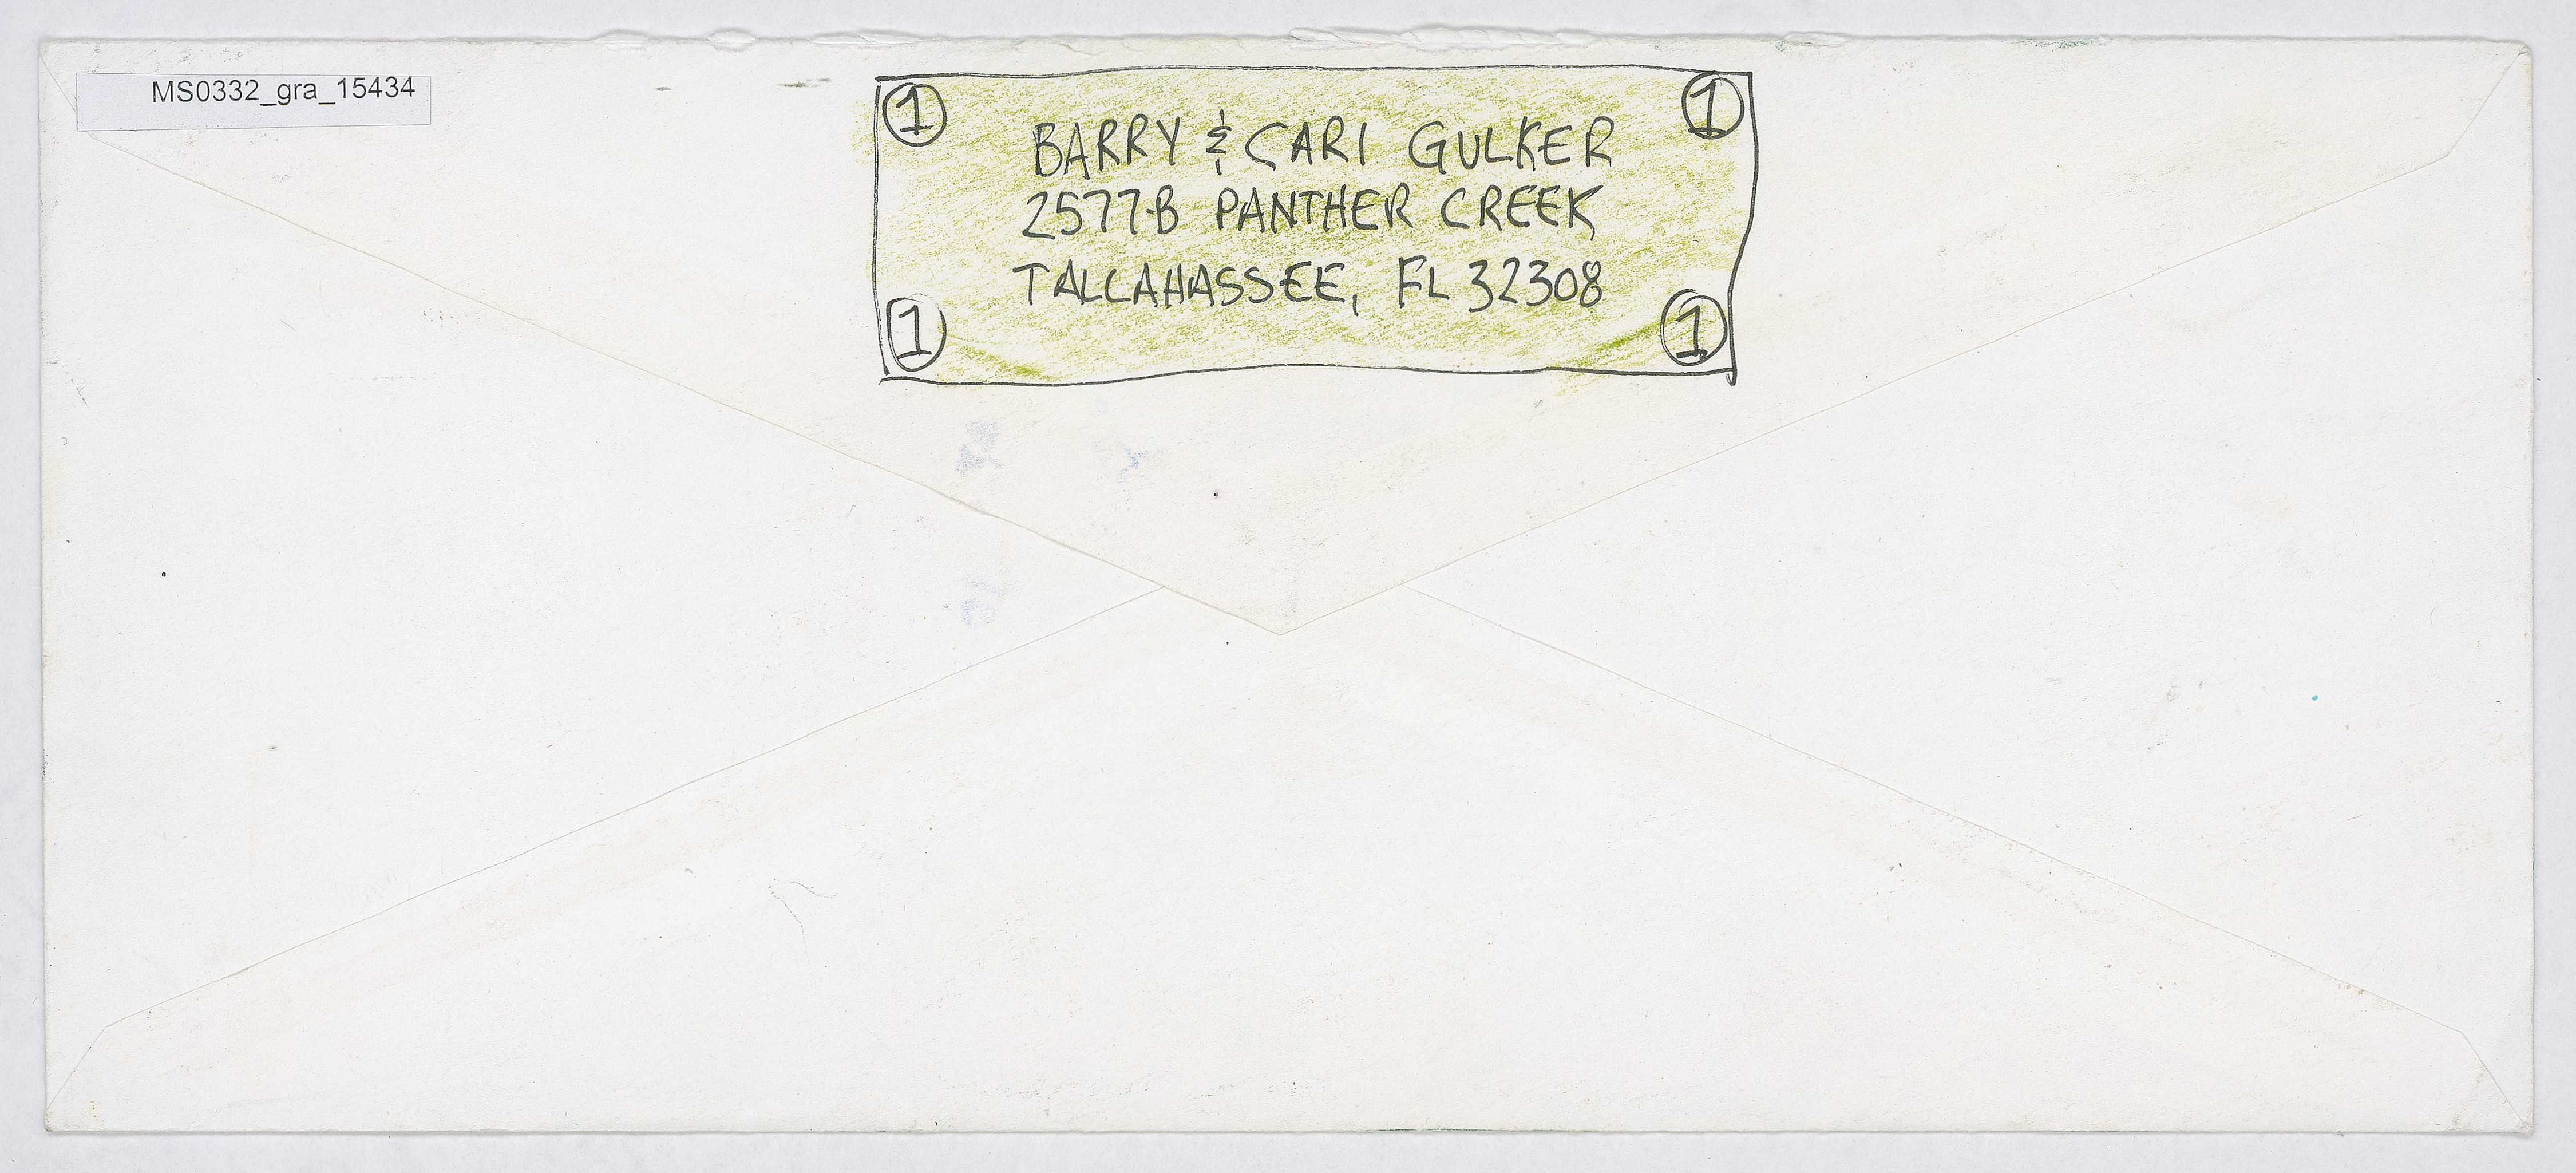 MS0332_gra_15434
1 1
BARRY & CARI GULKER
2577-B PANTHER CREEK
TALLAHASSEE, FL 32308
1 1